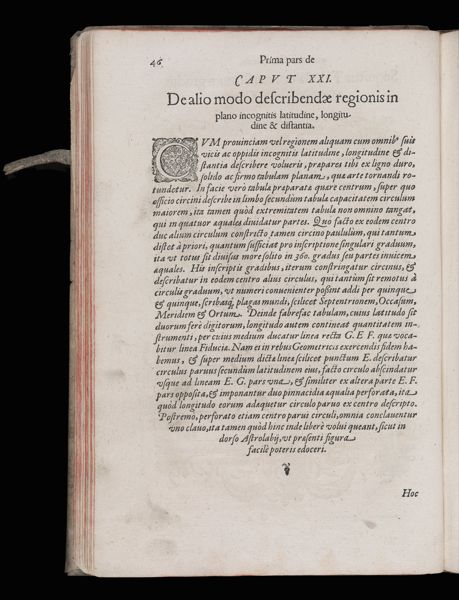 46
Prima pars de
CAPVT XXI.
De alio modo describendæ regionis in
plano incognitis latitudine, longitu-
dine & distantia.
CVM prouinciam vel regionem aliquam cum omnib9 suis
vicis ac oppidis incognitis latitudine, longitudine & di-
stantia describere volueris, prapares tibi ex ligno duro,
solido ac firmo tabulam planam, quæ arte tornandi ro-
tundetur. In facie verò tabulæ praparata quare centrum, super quo
officio circini describe in limbo secundum tabula capacitatem circulum
maiorem, ita tamen quòd extremitatem tabula non omnino tangat,
qui in quatuor aquales diuidatur partes. Quo facto ex eodem centro
duc alium circulum constricto tamen circino paululùm, qui tantum
distet à priori, quantum sufficiat pro inscriptione singulari graduum,
ita vt totus sit diuisus more solito in 360. gradus seu partes inuicem
aquales. His inscriptis gradibus, iterum constringatur circinus, &
describatur in eodem centro alius circulus, qui tantùm sit remotus à
circulis graduum, vt numeri conuenienter poßint addi per quinque
& quinque, scribasq; plagas mundi, scilicet Septentrionem, Occasum,
Meridiem & Ortum. Deinde fabrefac tabulam, cuius latitudo sit
duorum ferè digitorum, longitudo autem contineat quantitatem in-
strumenti, per cuius medium ducatur linea recta G. E F. quæ voca-
bitur linea Fiducia. Nam ei in rebus Geometricis exercendis fidem ha-
bemus, & super medium dicta linea scilicet punctum E. describatur
circulus paruus secundùm latitudinem eius, facto circulo abscindatur
vsque ad lineam E. G. pars vna, & similiter ex altera parte E. F.
pars opposita, & imponantur duo pinnacidia aqualia perforata, ita
quòd longitudo eorum adaquetur circulo paruo ex centro descripto.
Postremo, perforato etiam centro parui circuli, omnia conclauentur
vno clauo, ita tamen quòd hinc inde liberè volui queant, sicut in
dorso Astrolabij, vt præsenti figura
facilè poteris edoceri.
Hoc